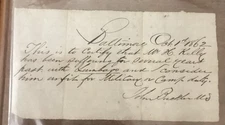 Baltimore Oct 1st 1862
This is to Certify that Mr H. Kelly
has been suffering for several years
past with Lumbago and I consider
him unfit for Military or Camp duty.
John M.D.